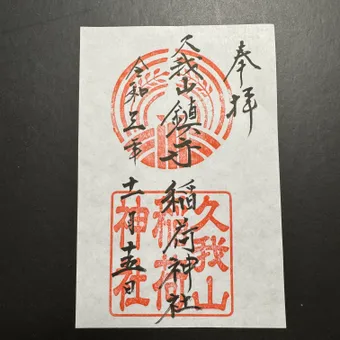 奉拝
久我山鎮守
稲荷神社
令和三年
十一月十五日
久我山
稲荷
神社